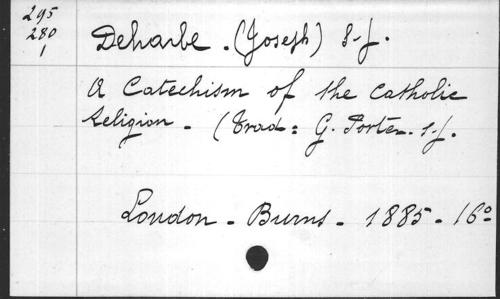 295
280
1
Deharbe. (Joseph) S-J.
A Catechism of the Catholic
Religion - (Trad: G. Porter. S-J.
London - Burns - 1885 - 16º